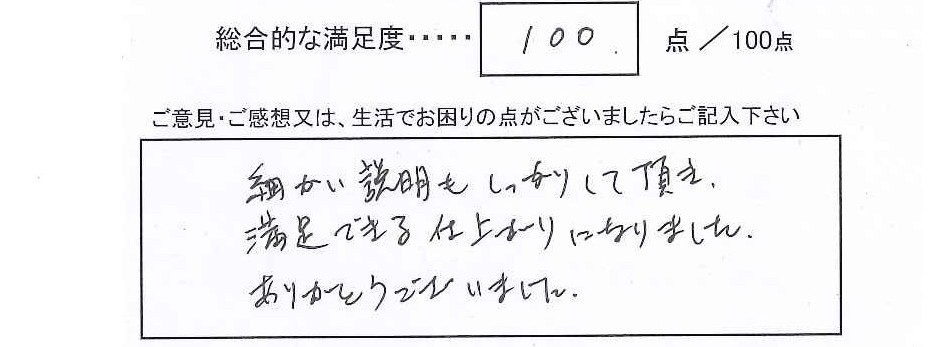 総合的な満足度・・・・・ 100. 点 ／100点
ご意見・ご感想又は、生活でお困りの点がございましたらご記入下さい
細かい説明もしっかりして頂き、
満足できる仕上がりになりました。
ありがとうございました。